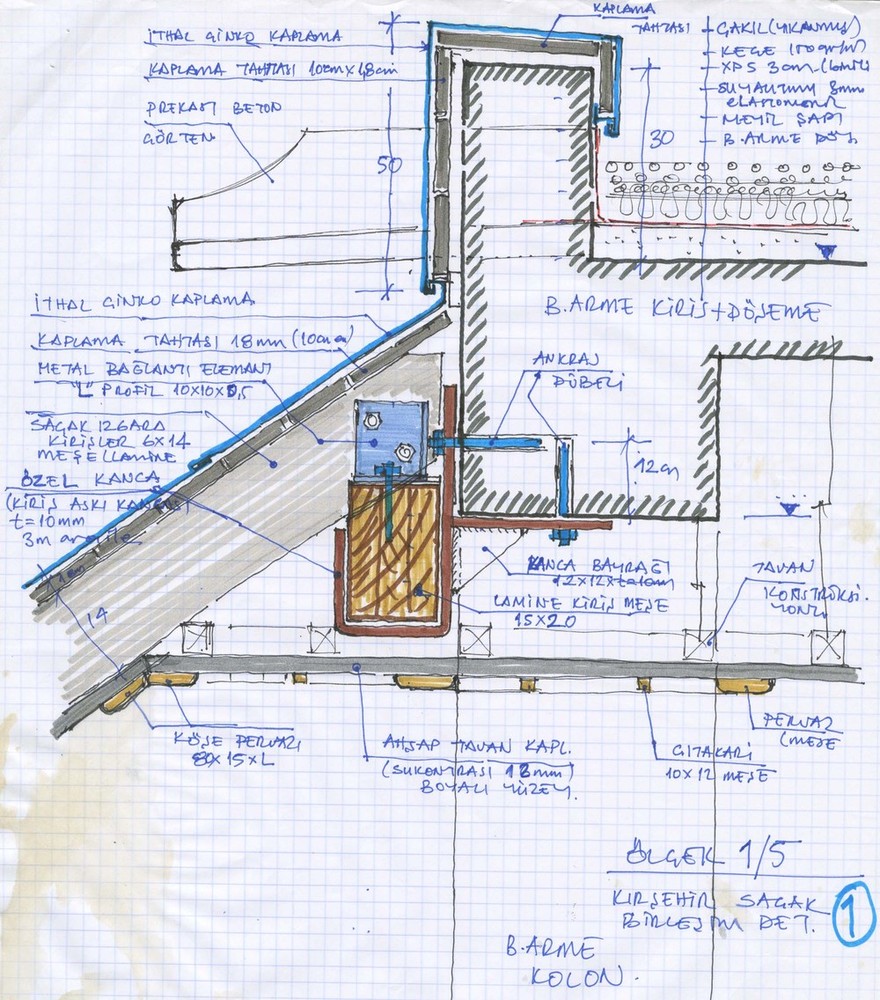 İTHAL GİNKO KAPLAMA
KAPLAMA TAHTASI 10cm×1,8cm
PREKAST BETON
GÖRTEN
50
KAPLAMA
TAHTASI
ÇAKIL (YIKANMIŞ)
KEÇE
XPS 3cm
SUYALITIMI 8mm
MEYİL ŞAPI
B.ARME DÖŞ.
30
B.ARME KİRİŞ+DÖŞEME
İTHAL GİNKO KAPLAMA
KAPLAMA TAHTASI 18mm (10cm)
METAL BAĞLANTI ELEMANI
"L" PROFİL 10X10X0,5
SAÇAK IZGARA
KİRİŞLER 6X14
MEŞE LAMİNE
ÖZEL KANCA
(KİRİŞ ASKI KANCASI)
t=10mm
3m
14
ANKRAJ
DÜBELİ
12cm
KANCA BAYRAĞI
12X12X
LAMİNE KİRİŞ MEŞE
15X20
TAVAN
KONSTRÜKSİ-
YONU
KÖŞE PERVAZI
15XL
AHŞAP TAVAN KAPL.
(SUKONTRASI 18mm)
BOYALI YÜZEY.
ÇITAKARİ
10X12 MEŞE
PERVAZ
(MEŞE
ÖLÇEK 1/5
KIRŞEHİR SAÇAK
BİRLEŞİM DET.
1
B.ARME
KOLON.